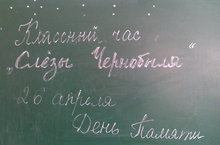 Классный час
„Слёзы Чернобыля"
26 апреля
День Памяти